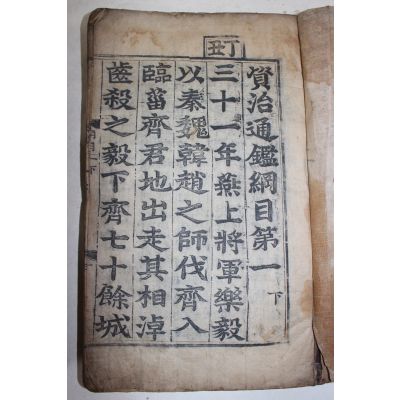 資治通鑑綱目第一下
丁丑
三十一年燕上將軍樂毅
以秦魏韓趙之師伐齊入
臨菑齊君地出走其相淖
齒殺之毅下齊七十餘城